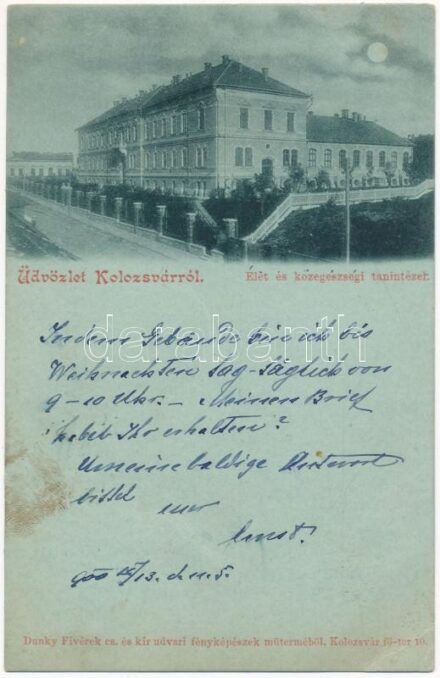 Üdvözlet Kolozsvárról.
Élet és közegészségi tanintézet.
darabanth
In dem Gebäude bin ich bis
Weihnachten tag-täglich von
9-10 Uhr. – Meinen Brief
habt Ihr erhalten?
Um eine baldige Antwort
bittet
Ernst.
900
Dunky Fivérek cs. és kir udvari fényképészek műterméből. Kolozsvár fő-tér 10.